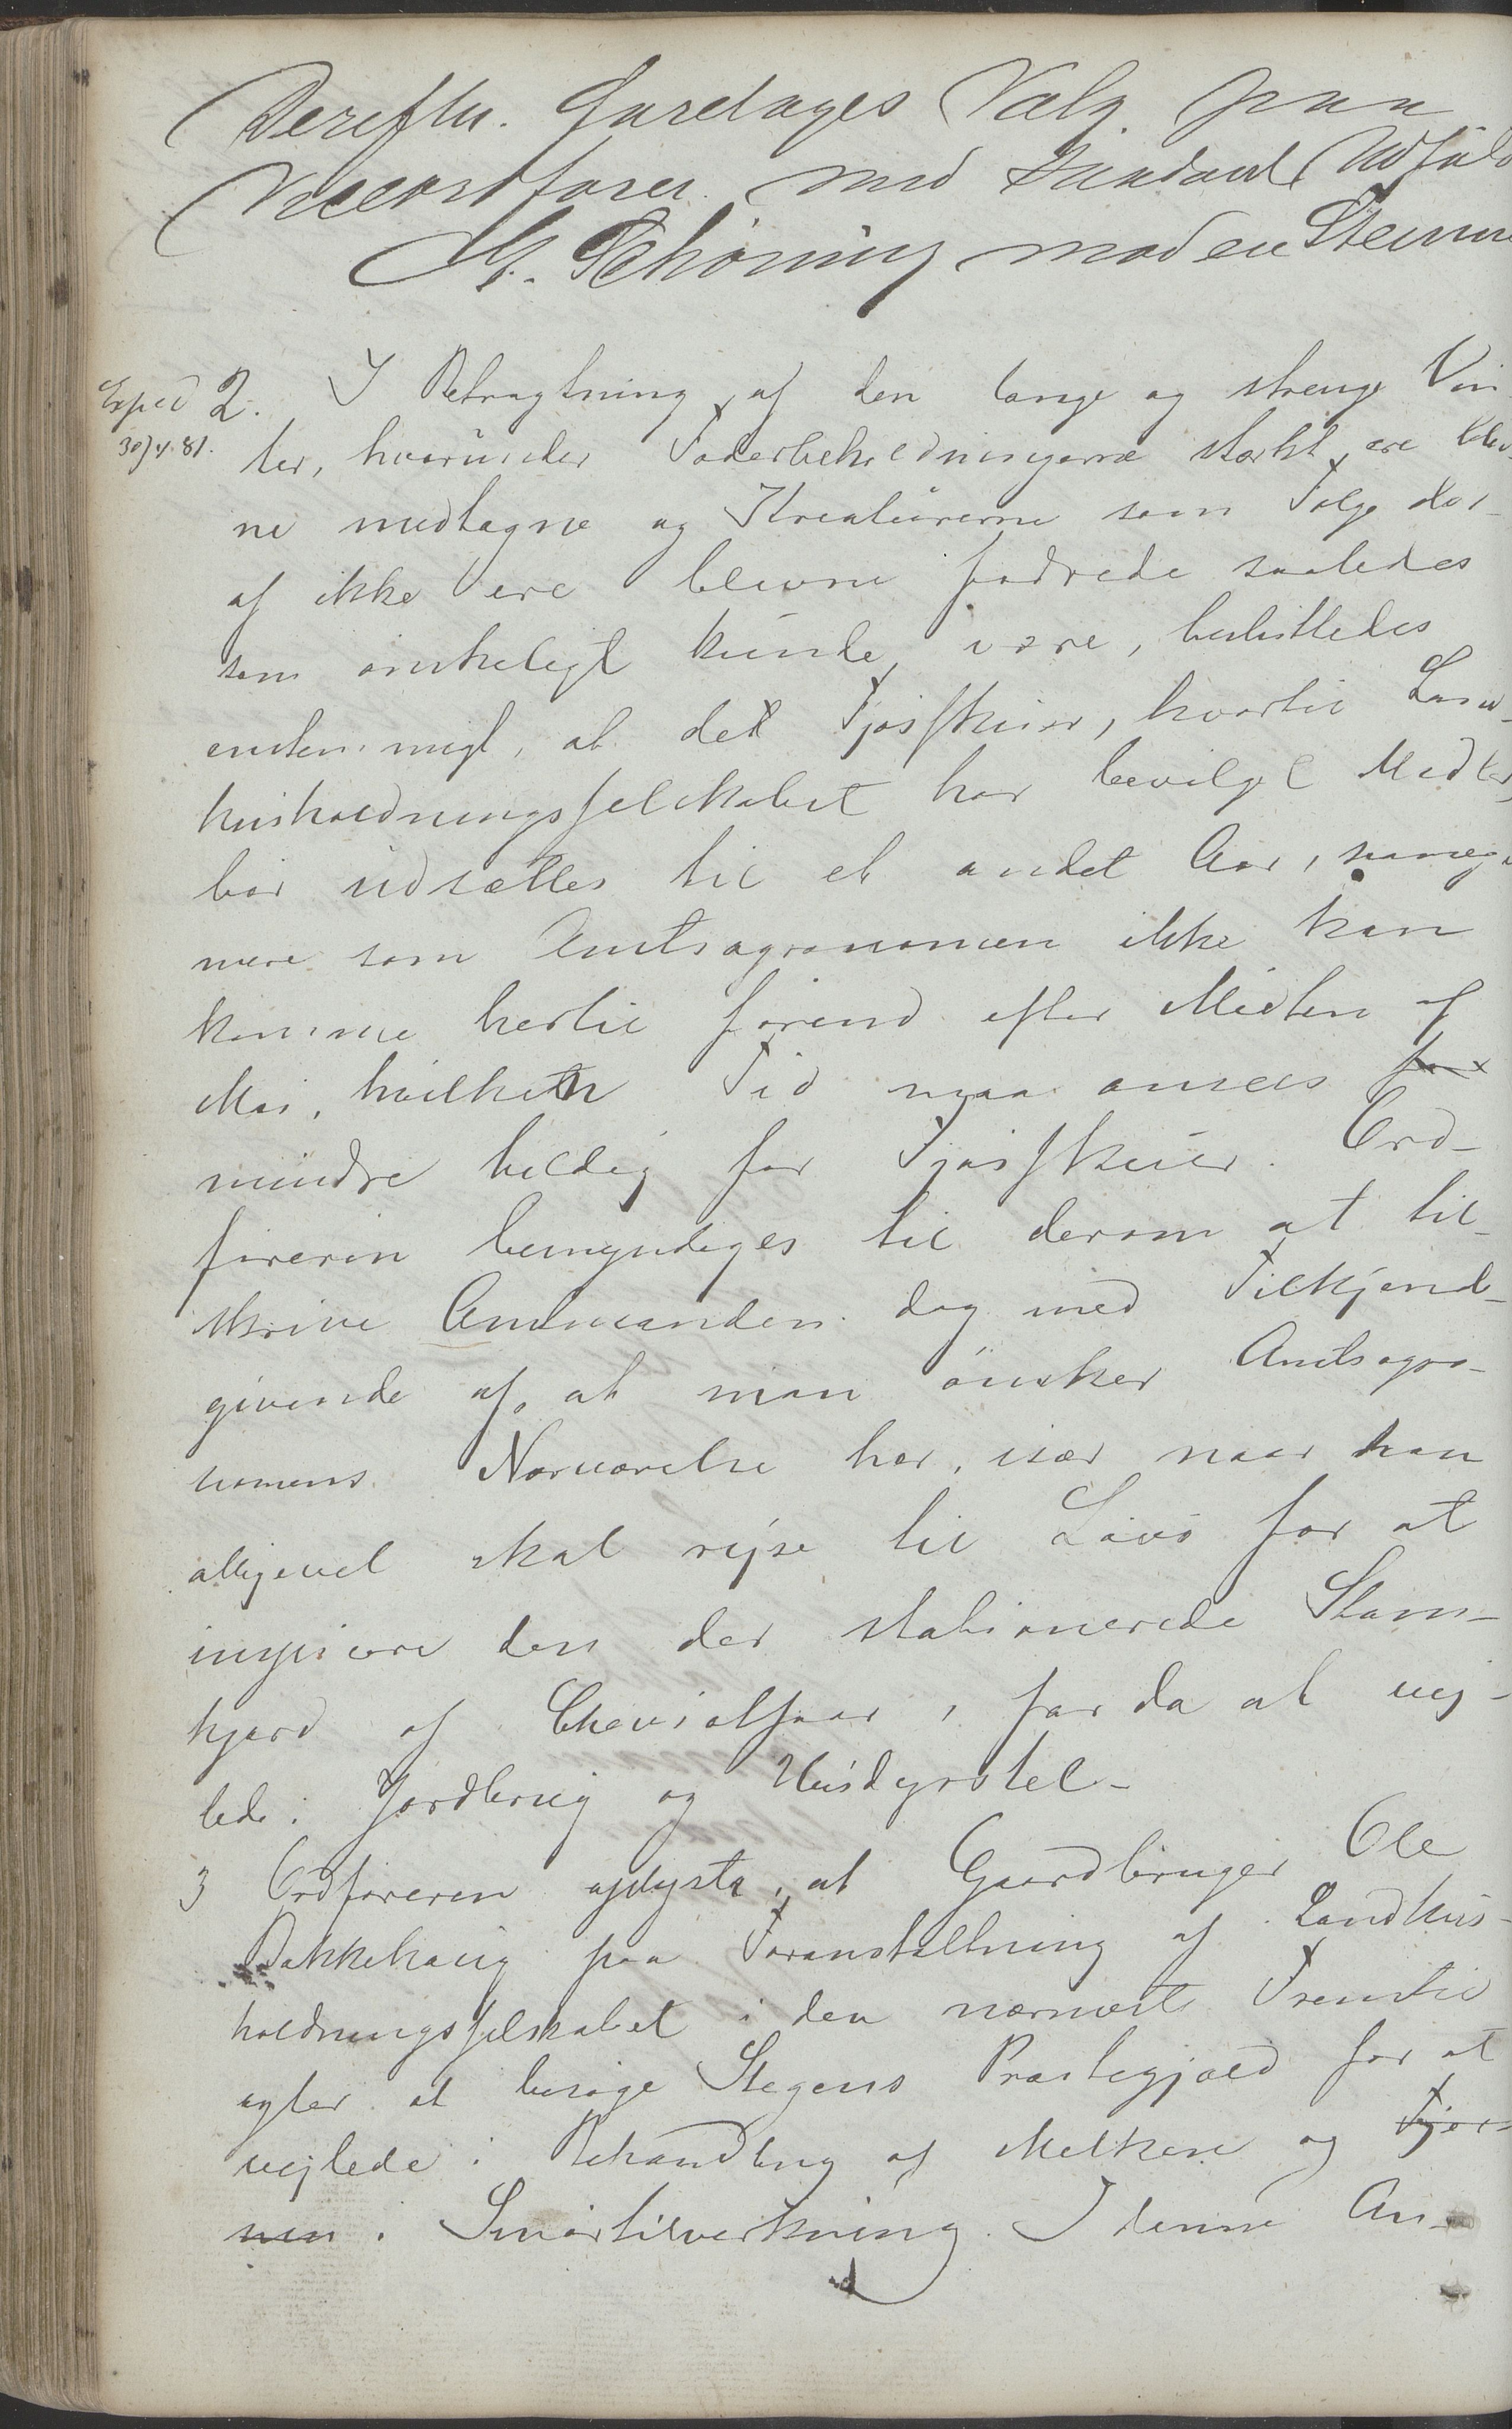 Derefter foretages Valg paa
Viceordfører med saadant Udfald
M. Schöning mod en Stemme
Exped
30/4.81.
2. I Betragtning af den lange og strenge Vin
ter, hvorunder Foderbeholdningerne stærkt ere blev-
ne medtagne og Kreaturerne som Følge der-
af ikke ere blevne fodrede saaledes
som ønskeligt kunde være, besluttedes
enstemmigt, at det Fjøsskuer, hvortil Land-
husholdningsselskabet har bevilget Midler,
bør udsættes til et andet Aar, saameget
mere som Amtsagronomen ikke kan
komme hertil førend efter Midten af
Mai, hvilken Tid maa ansees for
mindre heldig for Fjøsskuer. Ord-
føreren bemyndiges til derom at til-
skrive Amtmanden dog med Tilkjende-
givende af, at man ønsker Amtsagro-
nomens Nærværelse her, især naar han
alligevel skal rejse til Løvø for at
inspicere den der stationerede Stam-
hjord af Cheviotfaar, for da at vej-
lede i Jordbrug og Husdyrstel-
3 Ordføreren oplyste, at Gaardbruger Ole
Bakkehaug paa Foranstaltning af Landhus-
holdningsselskabet i den nærmeste Fremtid
agter at besøge Stegens Præstegjæld for at
vejlede i Behandling af Melken og Fjer-
nen i Smørtilvirkning. I denne An-